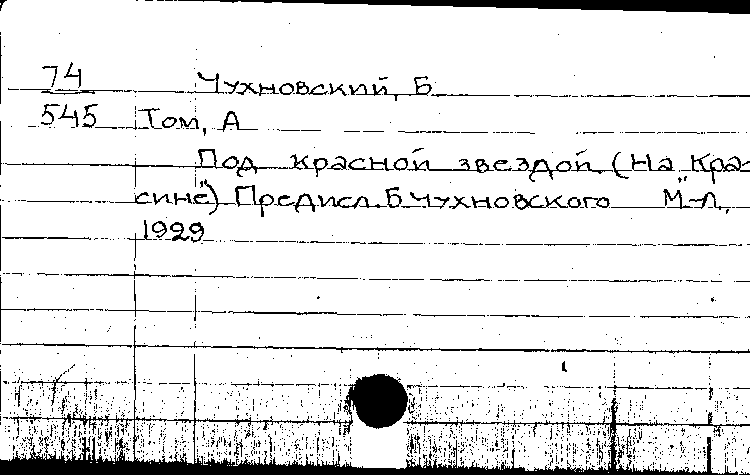 74 Чухновский, Б
545 Том, А
Под красной звездой. (На „Кра-
сине") Предисл. Б. Чухновского М.-Л.,
1929